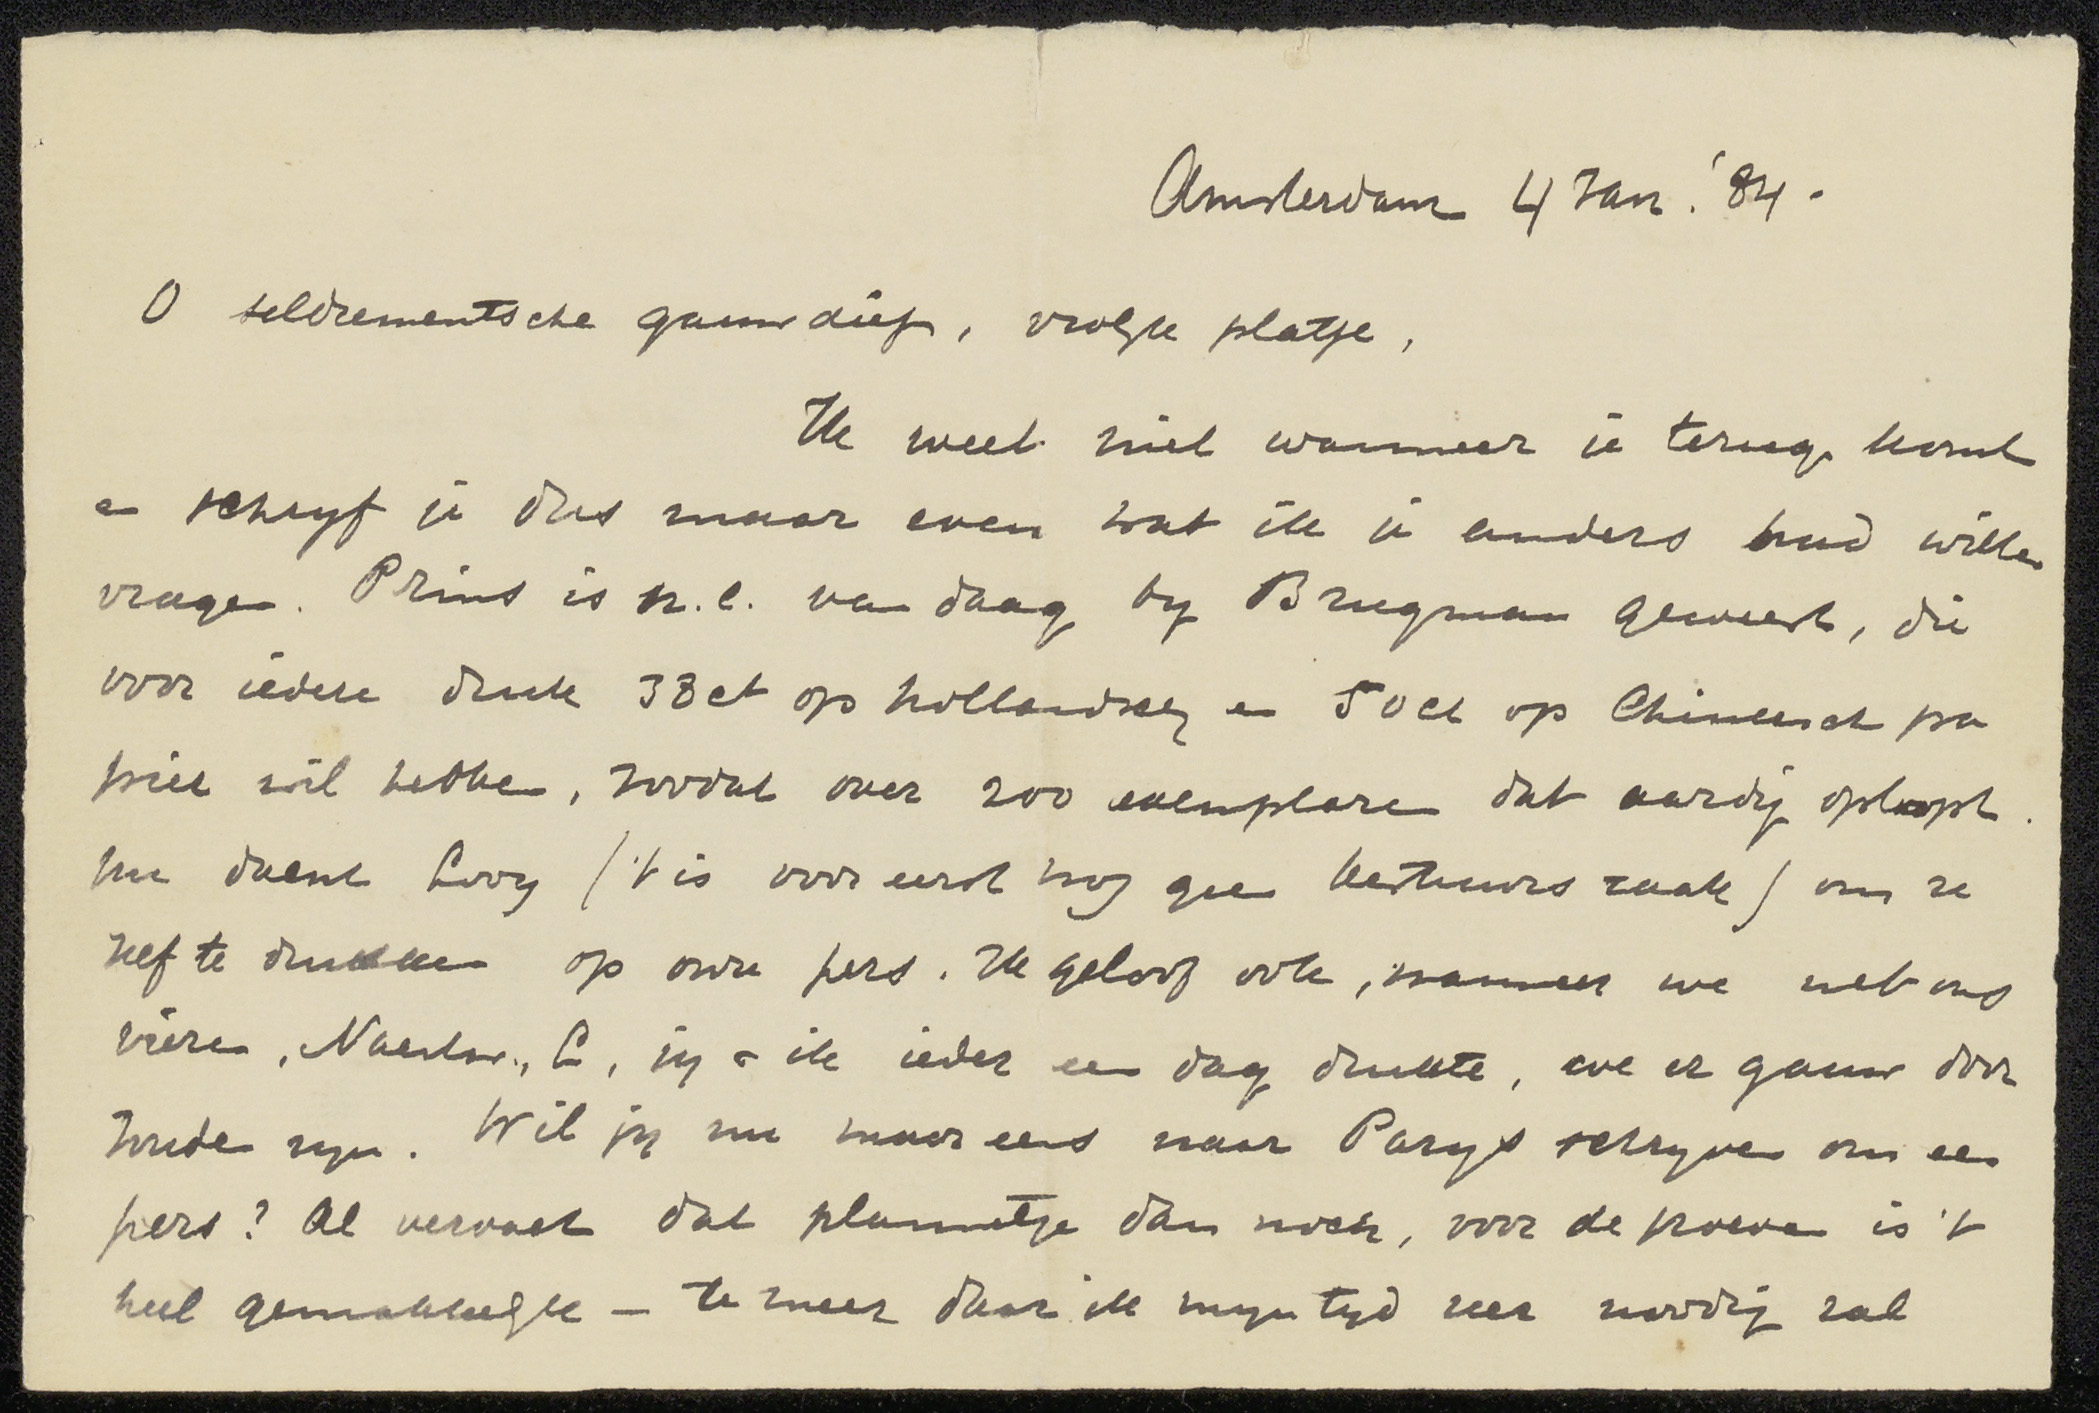 Amsterdam 4 Jan. '84.
O seldrementsche gauwdief, vrolijke platje,
Ik weet niet wanneer je terug komt
en schryf je dus maar even wat ik je anders had willen
vragen. Prins is n.l. van daag by Brugman geweest, die
voor iedere druk 38 ct op hollandsch en 50 ct op Chineesch pa
pier wil hebben, zoodat over 200 exemplaren dat aardig oploopt.
Nu denkt Looy ('t is voor eerst nog geen bestuurs zaak) om ze
zelf te drukken op onze pers. Ik geloof ook, wanneer we met ons
vieren, L, jy en ik ieder een dag drukte, we er gauw door
zouden zyn. Wil jy nu maar eens naar Parys schryven om een
pers? Al vervalt dat plannetje dan noch, voor de proeven is 't
heel gemakkelyk — te meer daar ik myn tyd zeer noodig zal